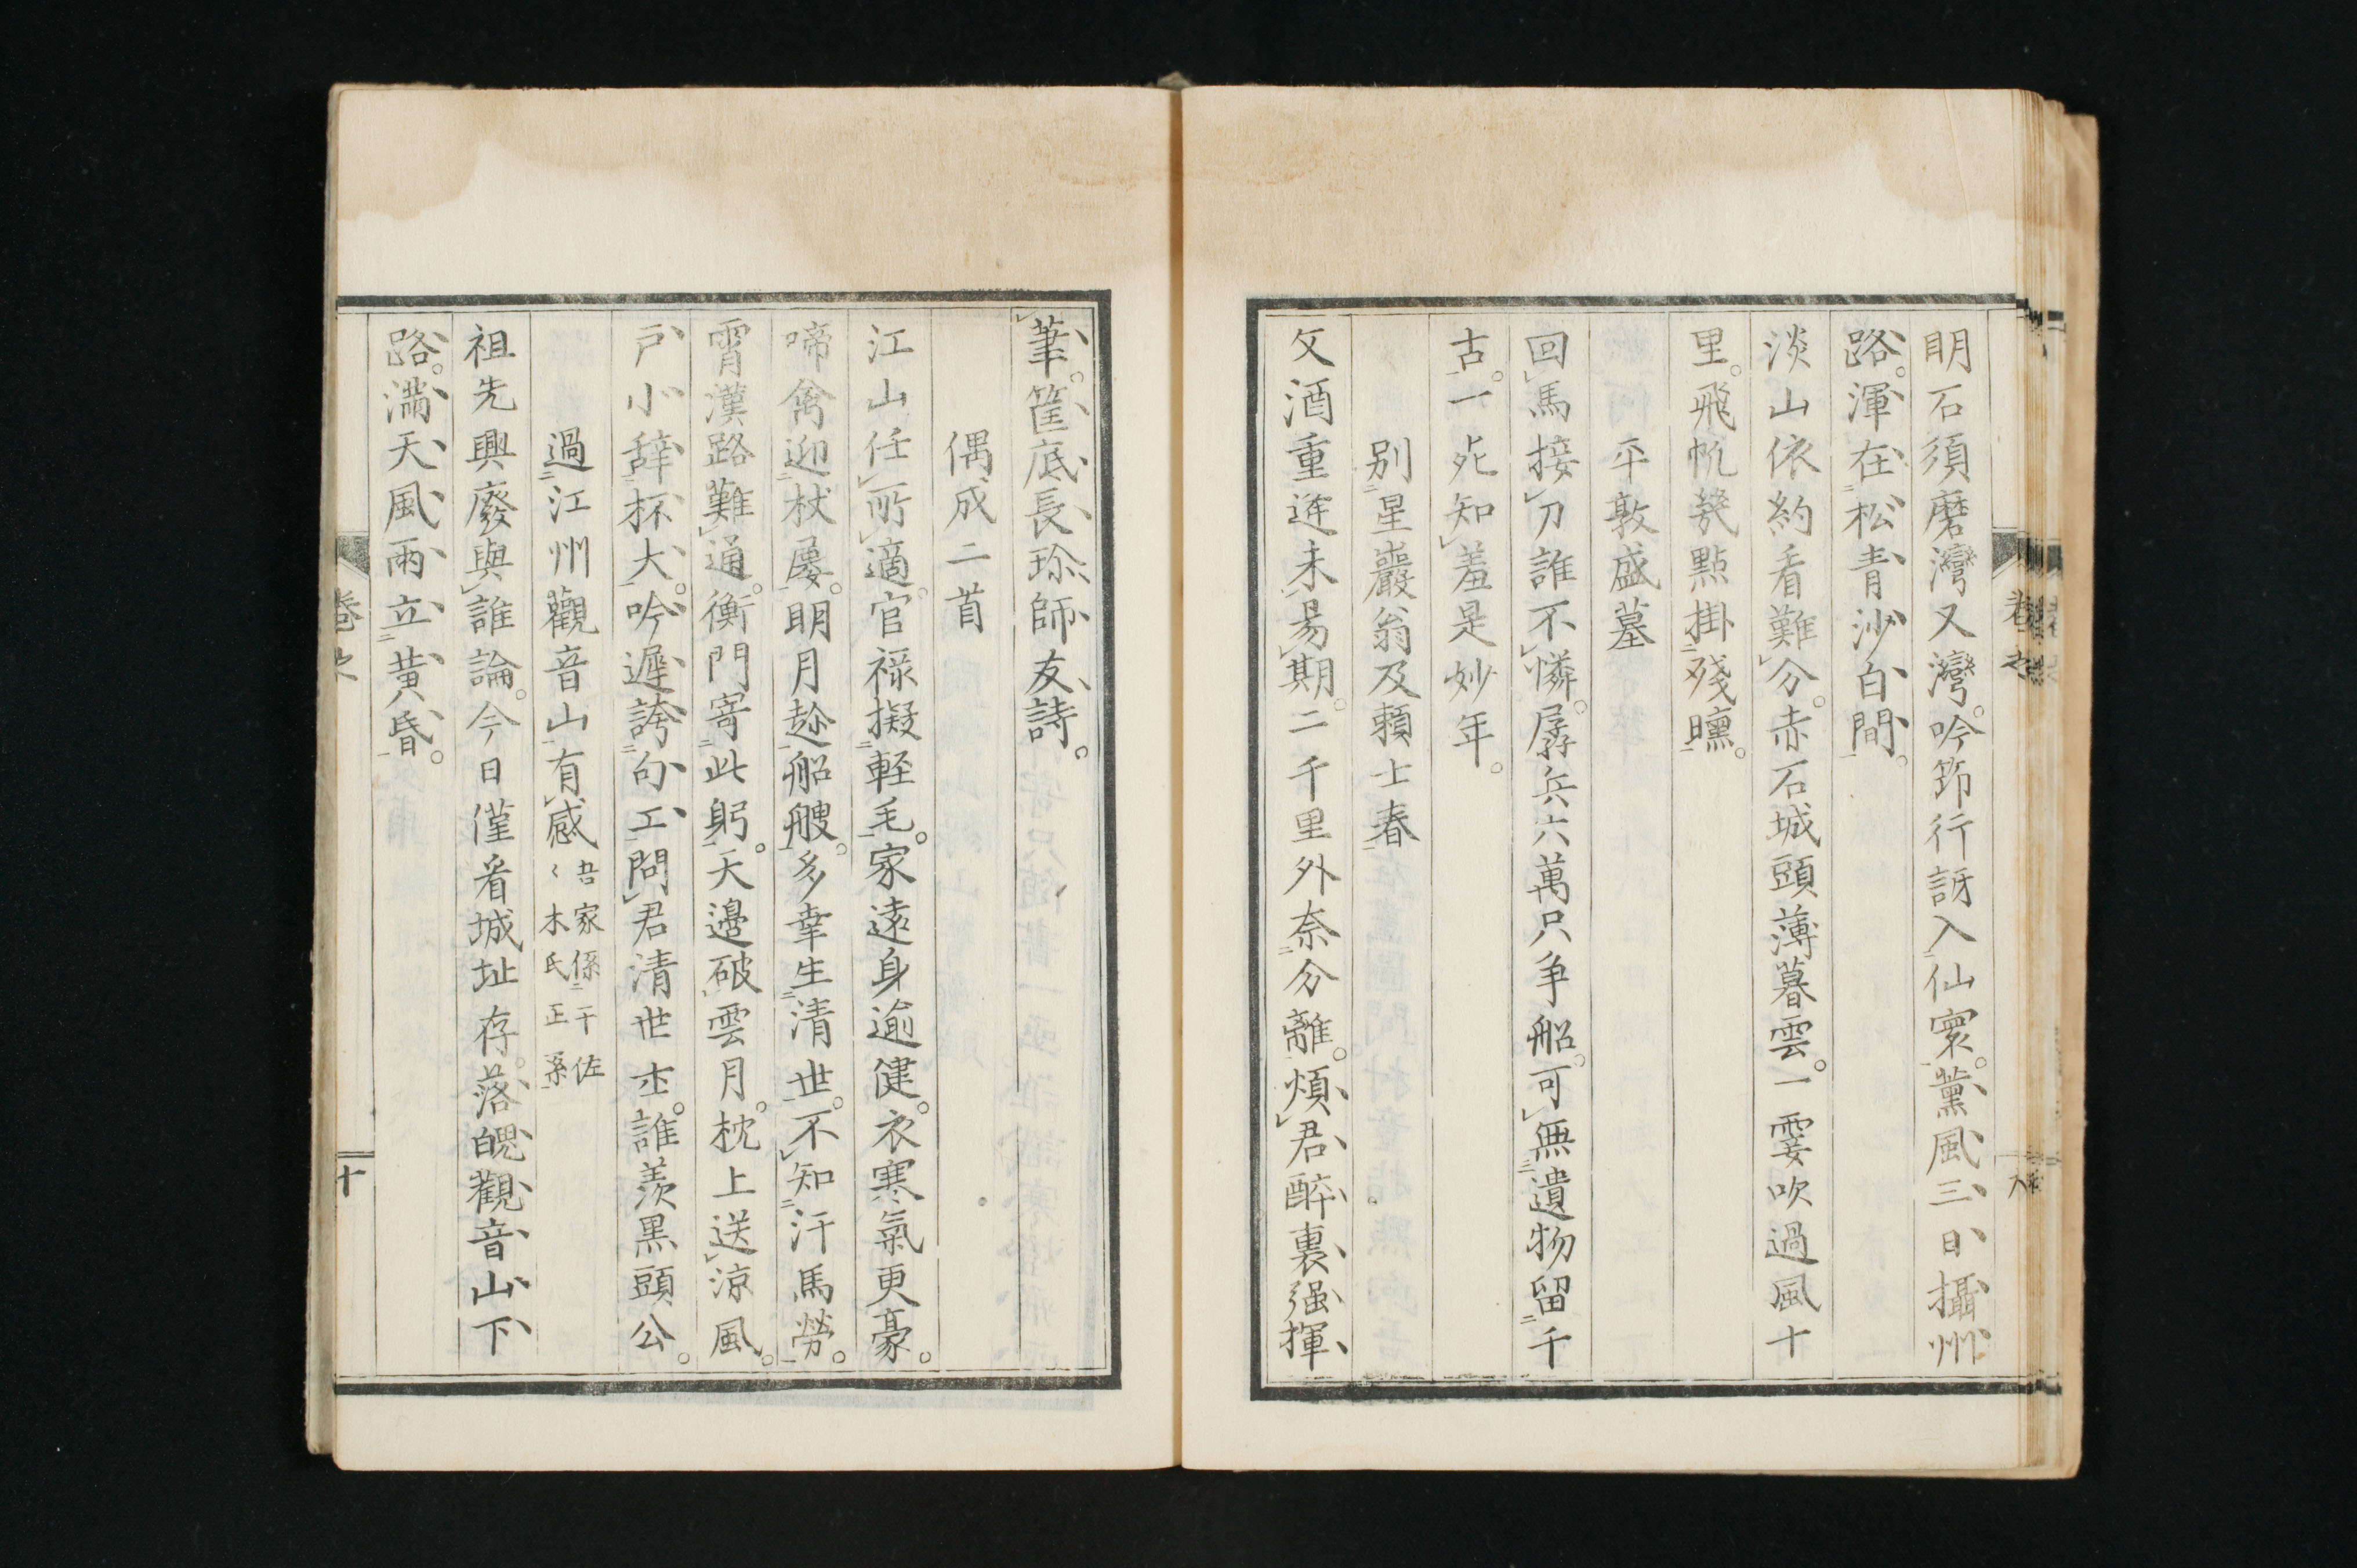 明石須磨灣又灣。吟筇行訝入仙寰。薰風三日攝州
路。渾在松青沙白間。
淡山依約看難分。赤石城頭薄暮雲。一霎吹過風十
里。飛帆幾點掛殘曛。
平敦盛墓
回馬接刀誰不憐。孱兵六萬只爭船。可無遺物留千
古。一死知羞是妙年。
別星巖翁及賴士春
文酒重遊未易期。二千里外奈分離。煩君醉裏强揮
筆。筐底長珍師友詩。
偶成二首
江山任所適。官祿擬輕毛。家遠身逾健。衣寒氣更豪。
啼禽迎杖屨。明月趁船艘。多幸生清世。不知汗馬勞。
霄漢路難通。衡門寄此躬。天邊破雲月。枕上送涼風。
戶小辭杯大。吟遲誇句工。問君清世士。誰羨黑頭公。
過江州觀音山有感
吾家係二千佐
々木氏正系
祖先興廢與誰論。今日僅看城址存。落魄觀音山下
路。滿天風雨立黃昏。
卷之
十